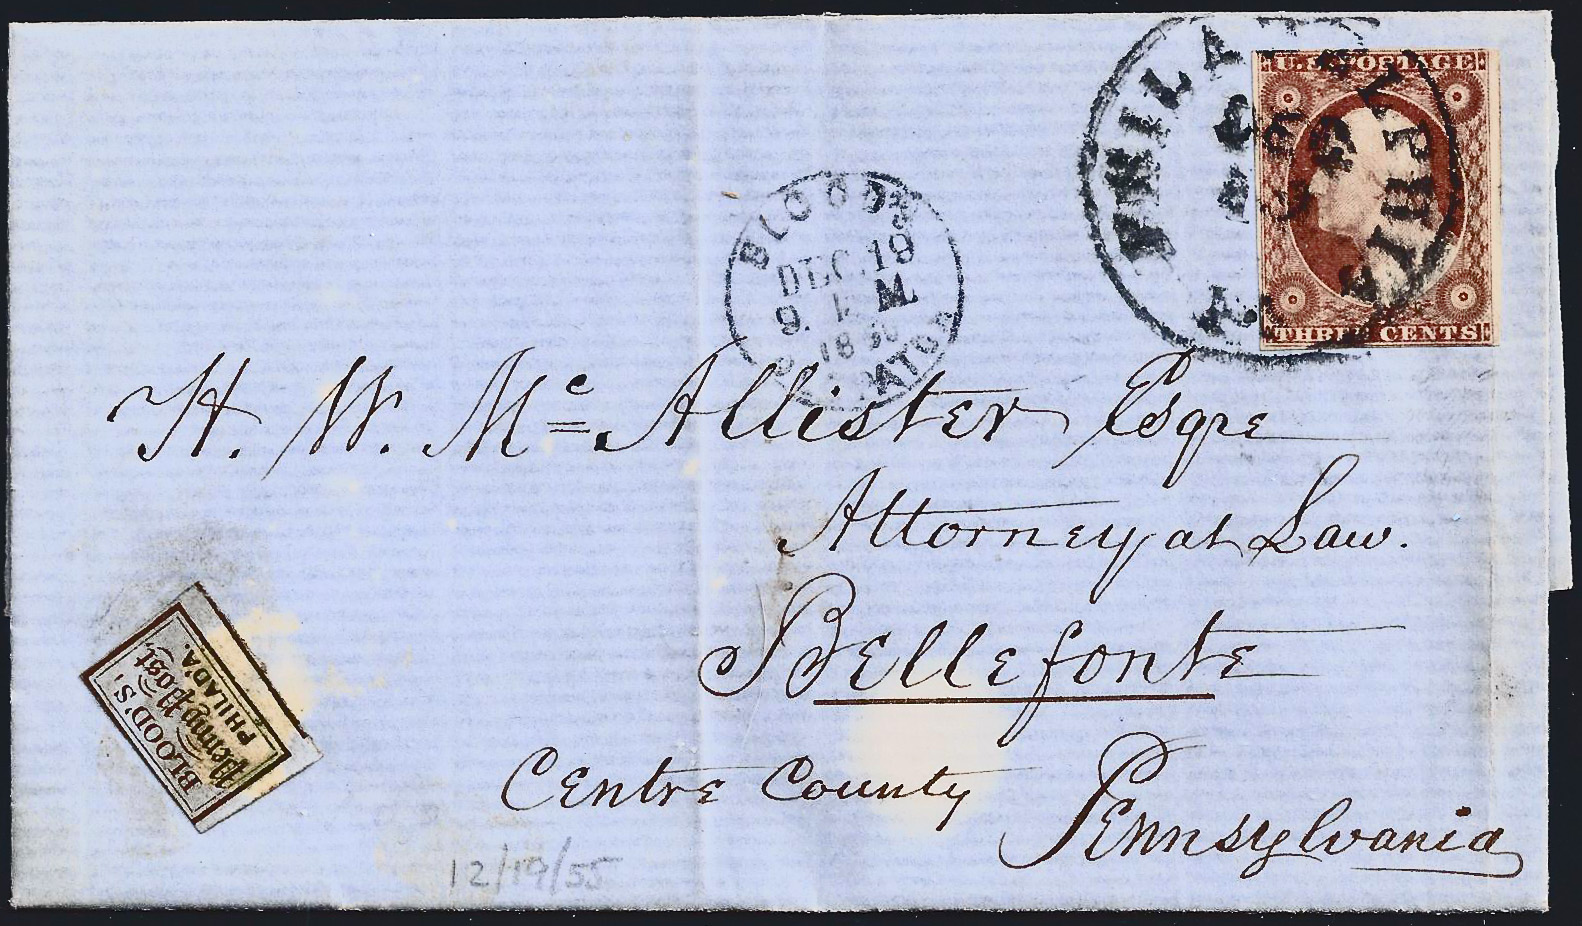 U.S. POSTAGE
THREE CENTS
PHILADELPHIA
BLOOD'S
DEC. 19
9. M.
H. W. Mc Allister Esqre
Attorney at Law.
Bellefonte
Centre County
Pennsylvania
BLOOD'S,
Penny Post
PHILAD'A.
12/19/55